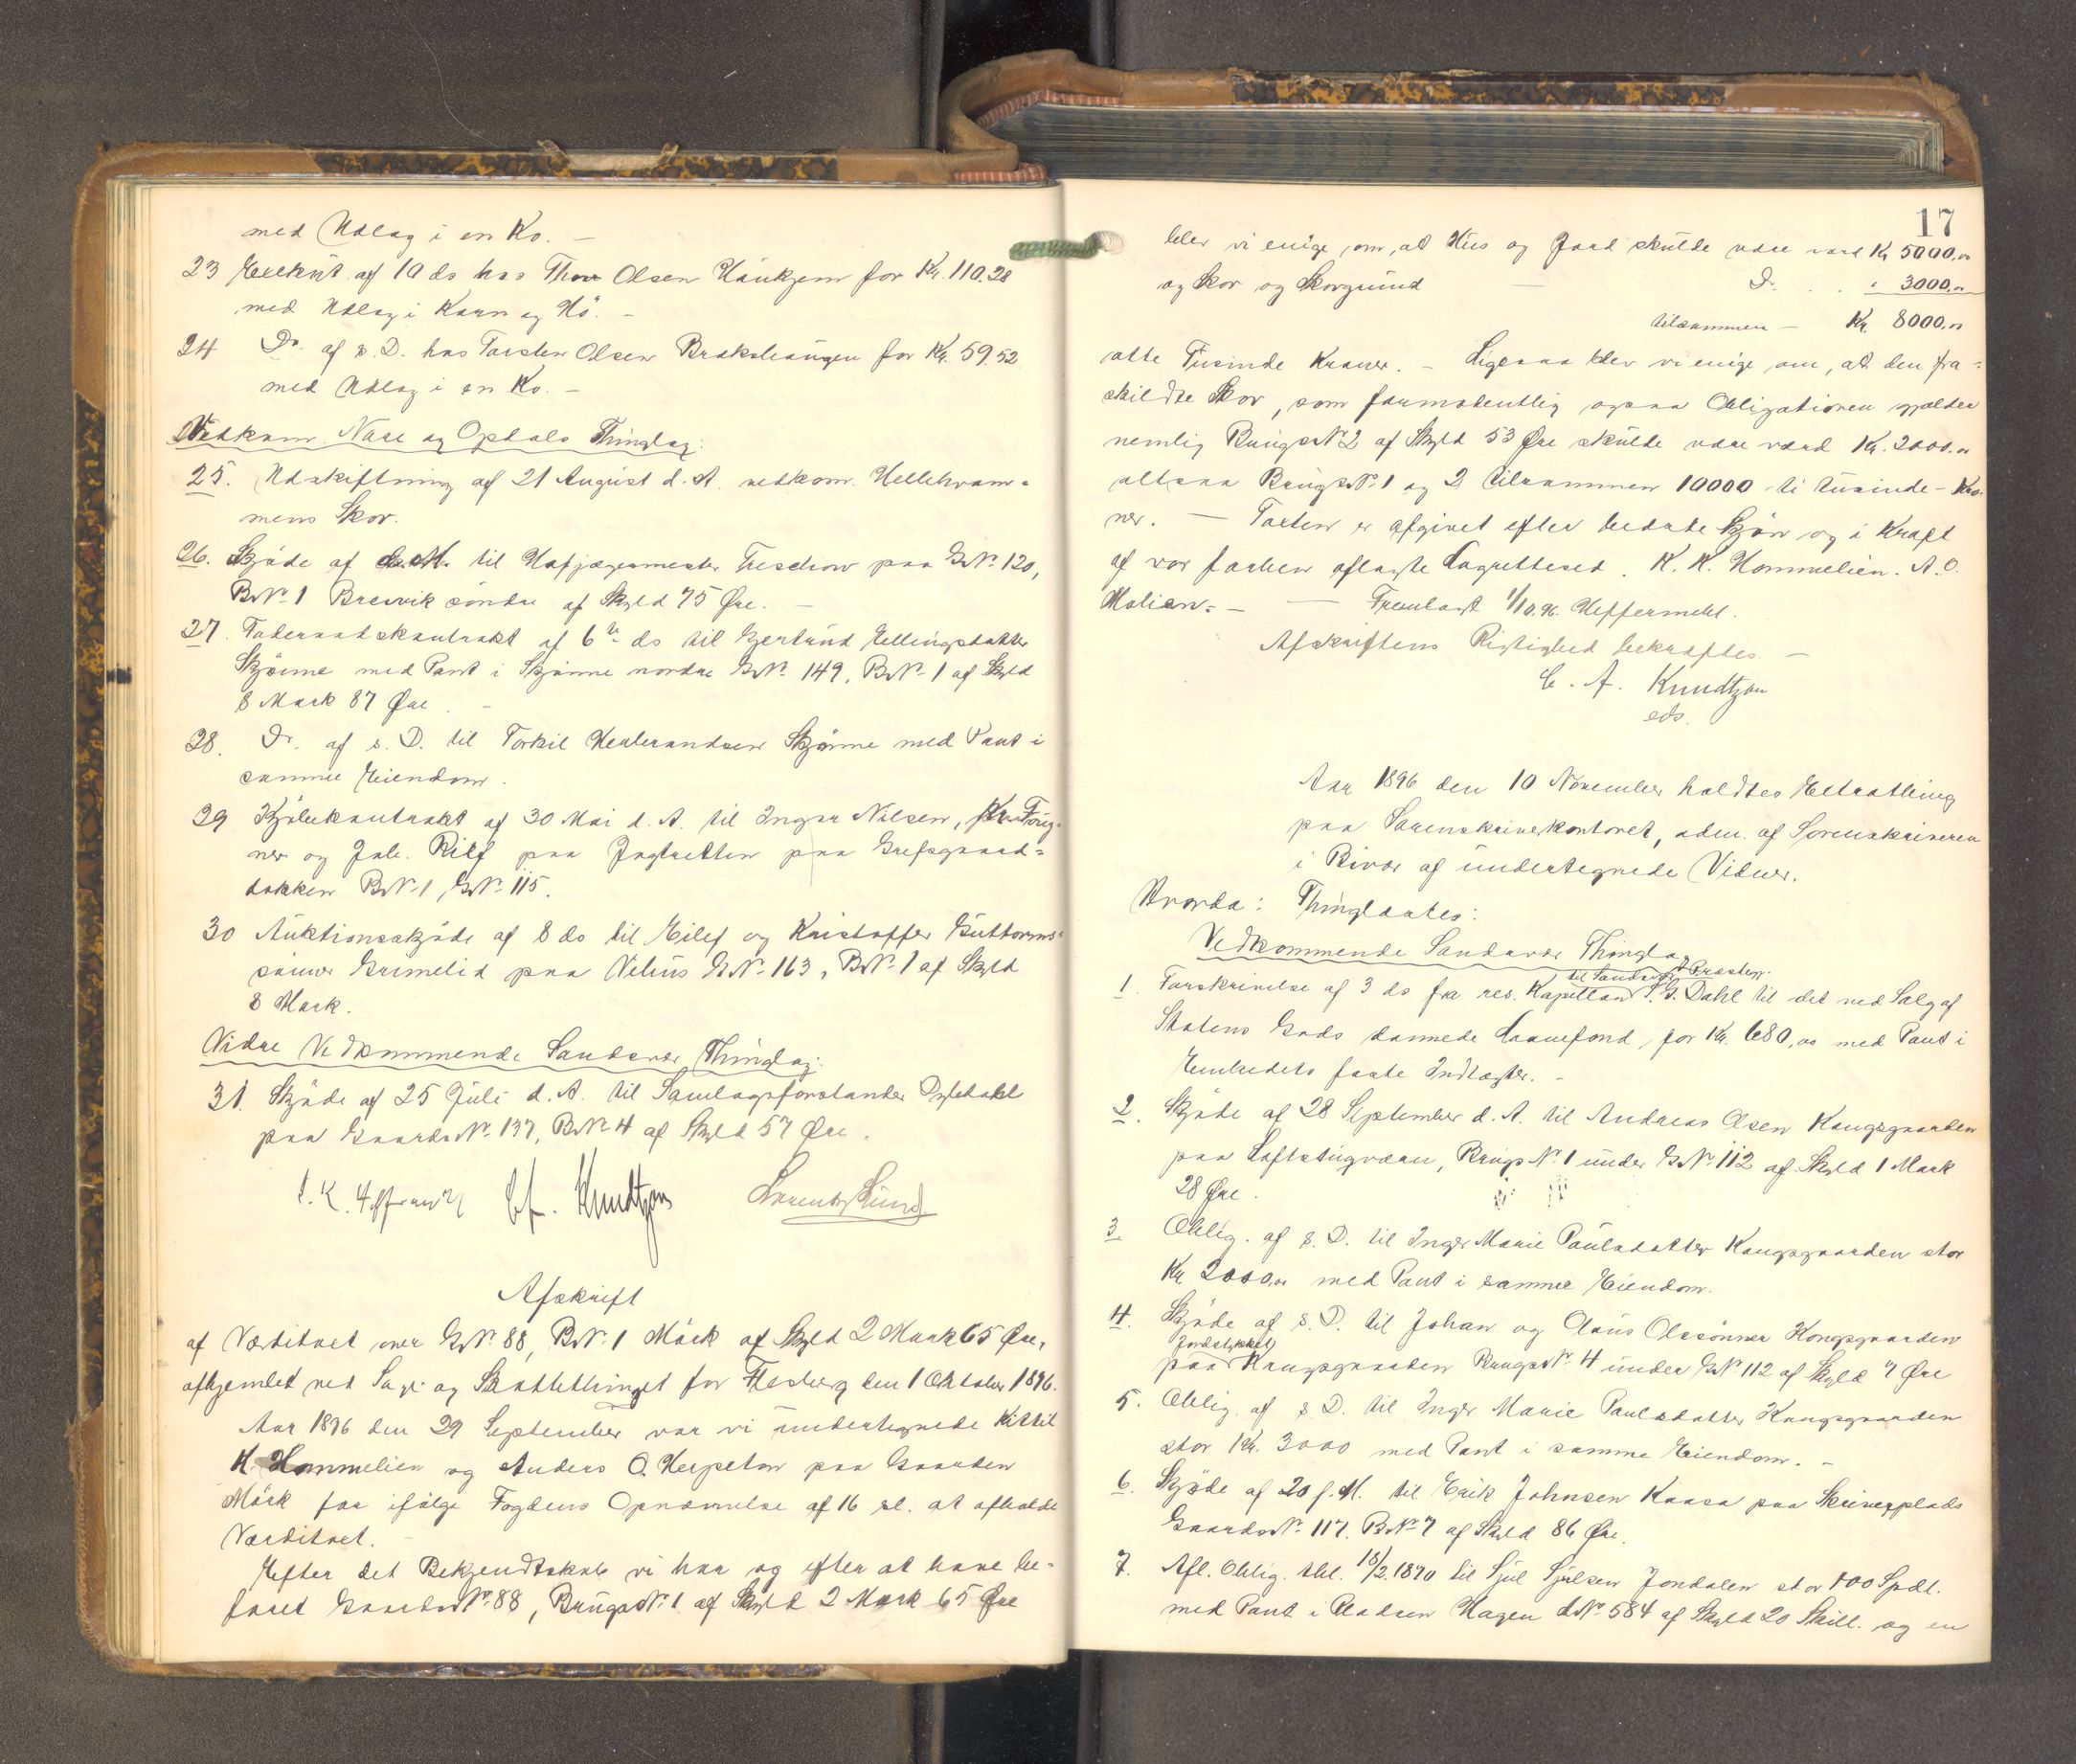 med Udlæg i en Ko. –
23 Exekut. af 10 ds hos Thor Olsen Haukjem for Kr. 110.28
med Udlæg i Korn og Hö. –
24 Do. af s. D. hos Torsten Olsen for Kr. 59.52
med Udlæg i en Ko. –
Vedkom. Nore og Opdals Thinglag:
25. Udskiftning af 21 August d. A. vedkom. Hellehvam=
mens Skov.
26. Skjöde af d. M. til Hofjægermester Treschow paa G.No 120,
B.No 1 Brevik söndre af Skyld 75 Øre. –
27. Föderaadskontrakt af 6te ds til Gjertrud Ellingsdatter
Skjönne med Pant i Skjönne nordre G.No 149, B.No 1 af Skyld
8 Mark 87 Øre. –
28. Do. af s. D. til Torkil Herbrandsen Skjönne med Pant i
samme Eiendom.
29 Kjöbekontrakt af 30 Mai d. A. til Ingar Nilsen, Kr. Foug=
ner og Joh. Rilf paa Jagtretten paa Grefsgaard=
dokken B.No 1, G.No 115.
30 Auktionsskjöde af 8 ds til Eilef og Kristoffer Guttorms=
sönner Grimelid paa Velius G.No 163, B.No 1 af Skyld
8 Mark.
Vidre Vedkommende Sandsvær Thinglag:
31. Skjöde af 25 Juli d. A. til Samlagsforstander Dybedahl
paa Gaards No. 137, B.No 4 af Skyld 57 Øre.
C. A. Knudtzon Laurits Lund
Afskrift
af Værditaxt over G.No 88, B.No 1 Mörk af Skyld 2 Mark 65 Øre,
afhjemlet ved Sage og Skattethinget for Flesberg den 1 Oktober 1896.
Aar 1896 den 29 September var vi undertegnede Kittil
K. Hommelien og Anders O. paa Gaarden
Mörk for ifölge Fogdens Opnævnelse af 16 sl. at afholde
Værditaxt. –
Efter det Bekjendtskab vi har og efter at have be=
faret Gaards No. 88, Brugs No. 1 af Skyld 2 Mark 65 Øre
17
blev vi enige om, at Hus og Jord skulde være værd Kr 5000,00
og Skov og Skovgrund – Do. . . " 3000,00
tilsammen – Kr. 8000.00
otte Tusinde Kroner. – Ligesaa blev vi enige om, at den fra=
skildte Skov, som formodentlig ogsaa Obligationen gjælder
nemlig Brugs No 2 af Skyld 53 Øre skulde være værd Kr. 2000.00
altsaa Brugs No. 1 og 2 tilsammen 10000 – ti tusinde – Kro=
ner. – Taxten er afgivet efter bedste Skjön og i Kraft
af vor forhen aflagte Lagretteed. K. K. Hommelien. A. O.
– – Fremlagt 1/10.96. Heffermehl.
Afskriftens Rigtighed bekræftes. –
C. A. Knudtzon
eds.
Aar 1896 den 10 November holdtes Extrathing
paa Sorenskriverkontoret, adm. af Sorenskriveren
i Bivær af undertegnede Vidner.
Hvorda: Thinglæstes:
Vedkommende Sandsvær Thinglag
1. Forskrivelse af 3 ds fra res. Kapellan til Sandsvær Præstegj. S. G. Dahl til det ved Salg af
Statens Gods dannede Laanefond, for Kr. 680,00 med Pant i
Embedets faste Indtægter. –
2. Skjöde af 28 September d. A. til Andreas Olsen Kongsgaarden
paa Loftstugræau, Brugs No. 1 under G.No 112 af Skyld 1 Mark
28 Øre.
3. Oblig. af s. D. til Inger Marie Paulsdatter Kongsgaarden stor
Kr. 2000,00 med Pant i samme Eiendom.
4. Skjöde af s. D. til Johan og Claus Olssönner Kongsgaarden
paa Jordstykket Kongsgaarden Brugs No. 4 under G.No 112 af Skyld 7 Øre
5. Oblig. af s. D. til Inger Marie Paulsdatter Kongsgaarden
stor Kr. 3000 med Pant i samme Eiendom. –
6. Skjöde af 20 f. M. til Erik Johnsen Kaasa paa Skriverplads
Gaards No. 117. B.No 7 af Skyld 86 Øre.
7. Afl. Oblig. thl. 18/2.1870 til Sjul Sjulsen Jondalen stor 100 Spdl.
med Pant i Pladsen Hagen L.No. 584 af Skyld 20 Skill. og en